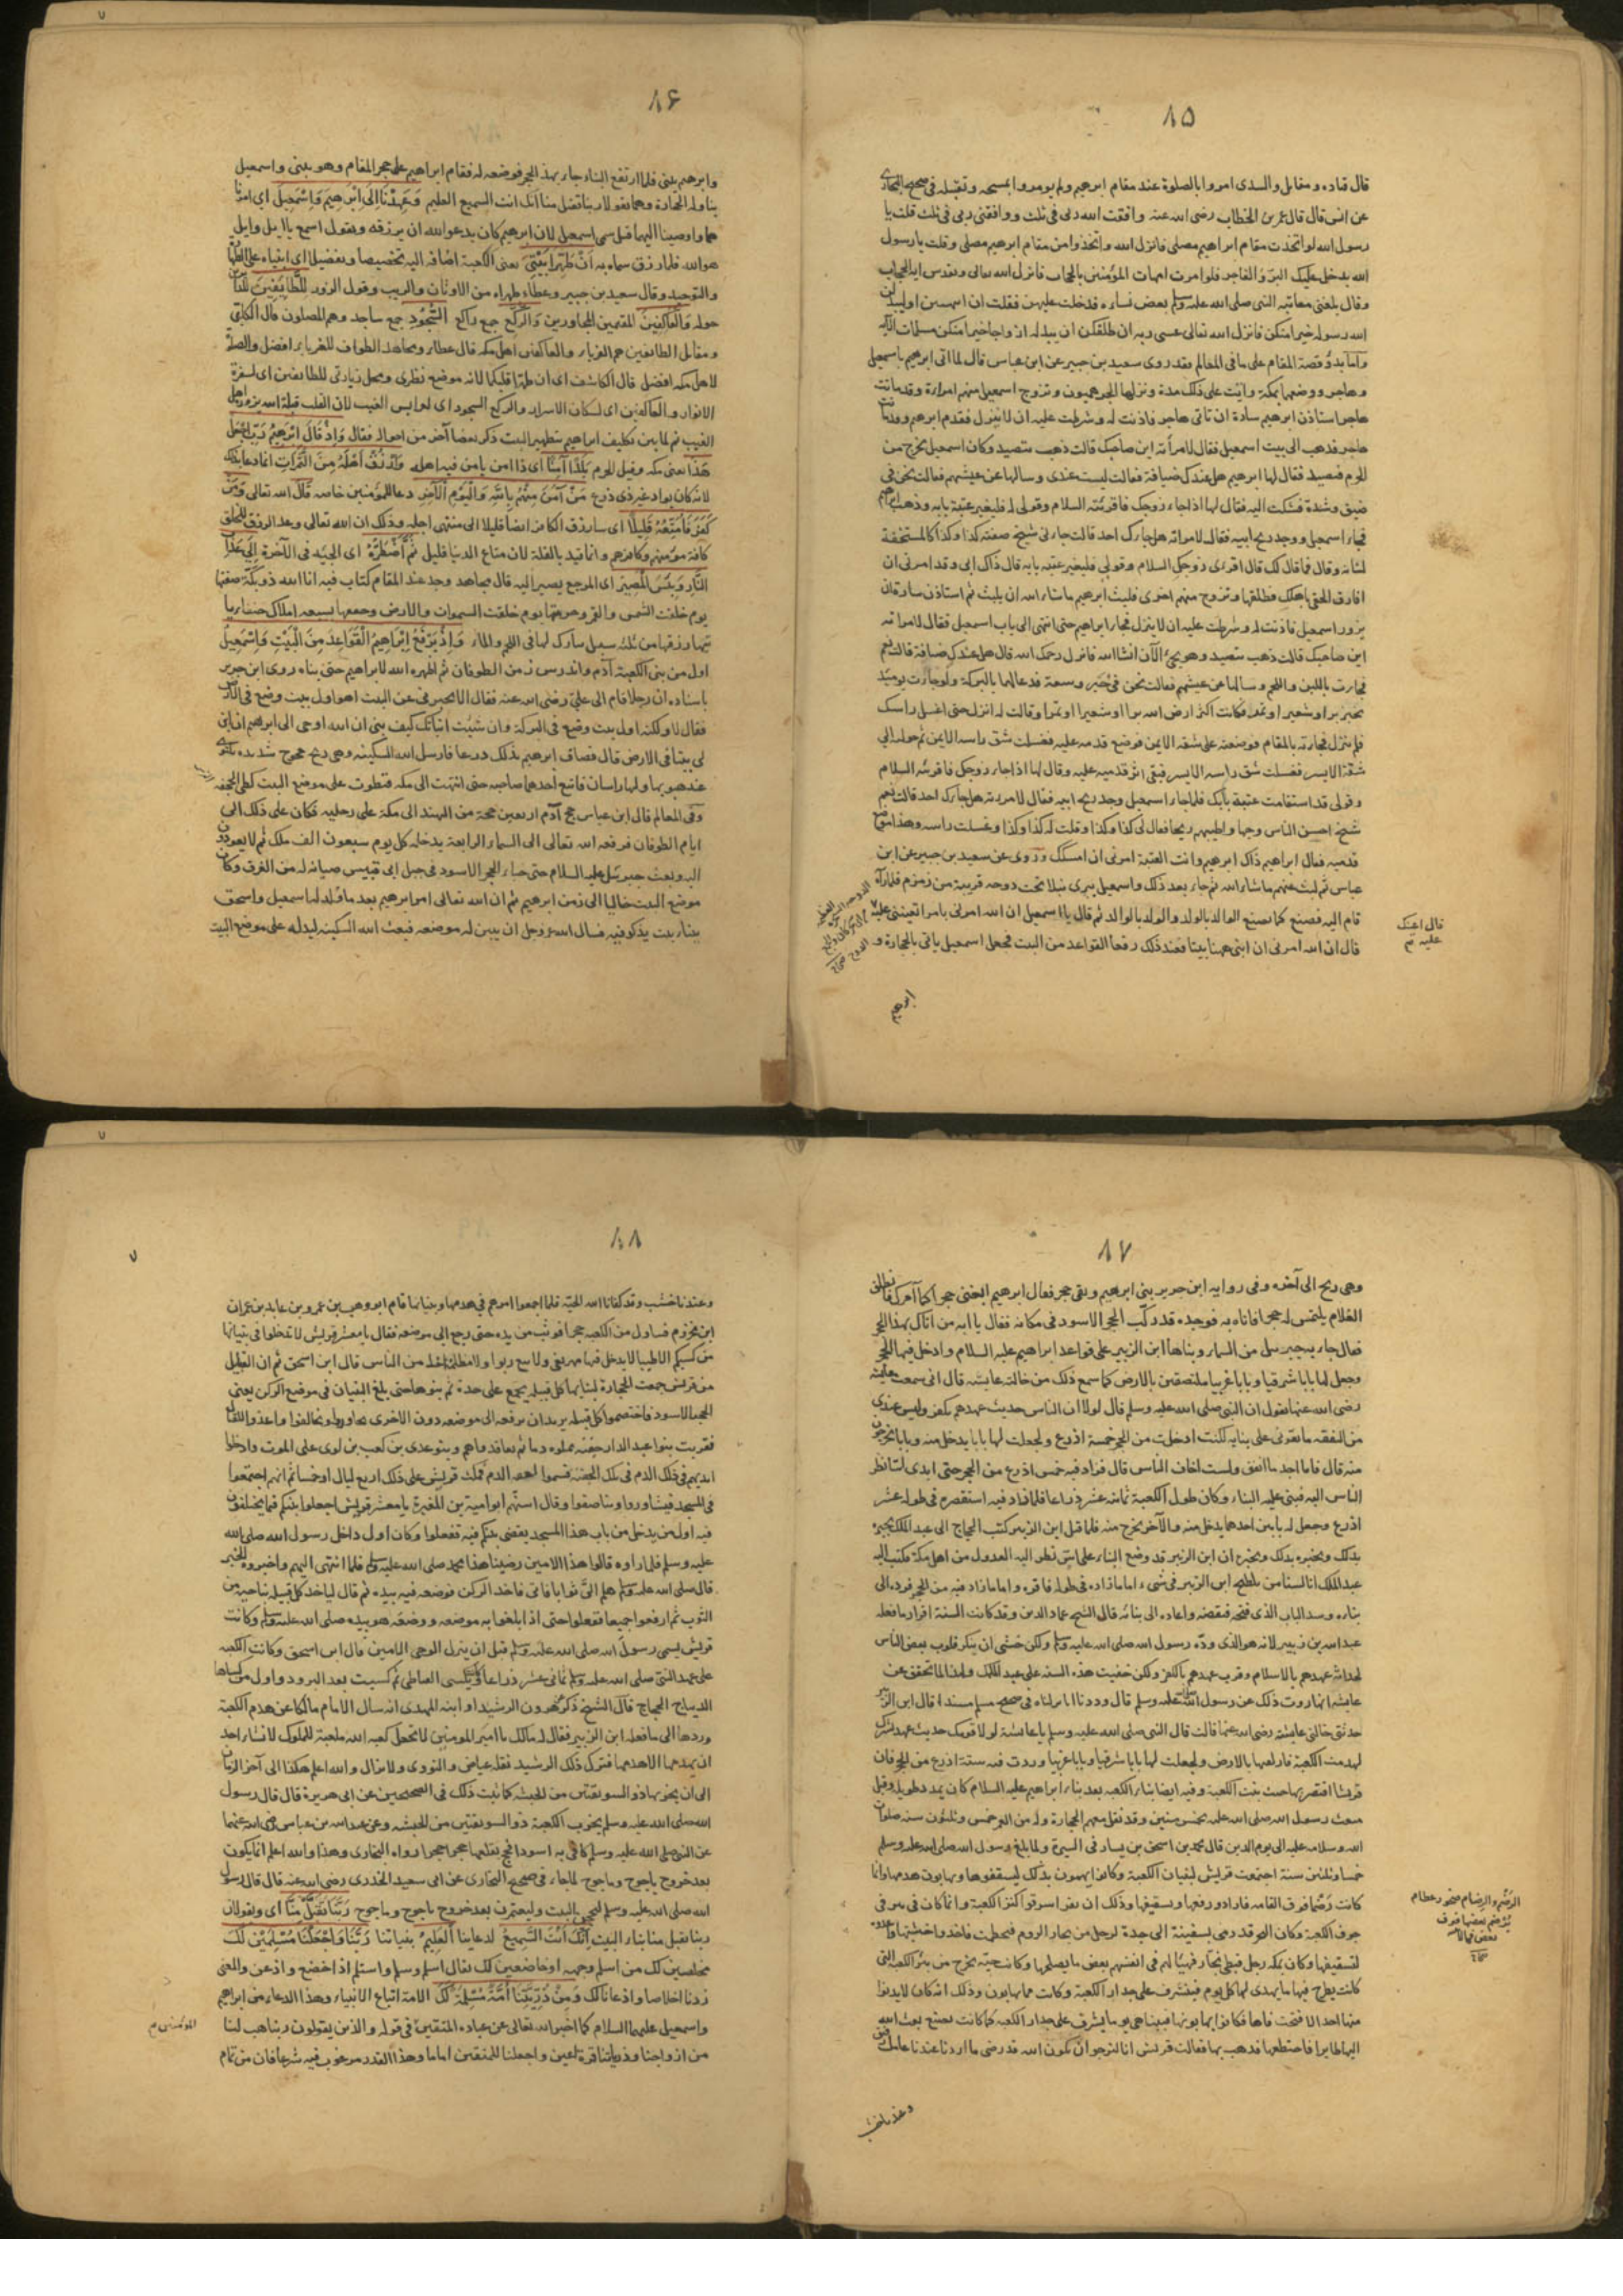 ۸۵
قال قتاده ومقاتل والسدى امروا بالصلوة عند مقام ابرهيم ولم يومروا بمسحه وتقبيله فى صحيح البخارى
عن انس قال قال عمر بن الخطاب رضى الله عنه وافقت الله ربى فى ثلث ووافقنى ربى فى ثلث قلت يا
رسول الله لو اتخذت مقام ابراهيم مصلى فانزل الله واتخذوا من مقام ابرهيم مصلى وقلت يا رسول
الله يدخل عليك البر والفاجر فلو امرت امهات المؤمنين بالحجاب فانزل الله تعالى اية الحجاب
وقال بلغنى معاتبة النبى صلى الله عليه وسلم بعض نساءه فدخلت عليهن فقلت ان انتهيتن او ليبدلن
الله رسوله خيرا منكن فانزل الله تعالى عسى ربه ان طلقكن ان يبدله ازواجا خيرا منكن مسلمات الآية
واما بدو قصة المقام على ما فى المعالم فقد روى سعيد بن جبير عن ابن عباس قال لما اتى ابرهيم باسمعيل
وهاجر ووضعهما بمكة واتت على ذلك مدة ونزلها الجرهميون وتزوج اسمعيل منهم امراة وقد ماتت
هاجر استاذن ابرهيم سارة ان ياتى هاجر فاذنت له وشرطت عليه ان لا ينزل فقدم ابرهيم وقد ماتت
هاجر فذهب الى بيت اسمعيل فقال لامرأته اين صاحبك قالت ذهب يتصيد وكان اسمعيل يخرج من
الحرم فيصيد فقال لها ابرهيم هل عندك ضيافة فقالت ليست عندى وسالها عن عيشهم فقالت نحن فى
ضيق وشدة فشكت اليه فقال لها اذا جاء زوجك فاقرئيه السلام وقولى له فليغير عتبة بابه وذهب ابرهيم
فجاء اسمعيل ووجد ريح ابيه فقال لامراته هل جاءك احد قالت جاءنى شيخ صفته كذا وكذا كالمستخفة
لشانه وقال فما قال لك قال اقرئى زوجك السلام وقولى فليغير عتبة بابه قال ذاك ابى وقد امرنى ان
افارقك الحقى باهلك فطلقها وتزوج منهم اخرى فلبث ابرهيم ما شاء الله ان يلبث ثم استاذن سارة ان
يزور اسمعيل فاذنت له وشرطت عليه ان لا ينزل فجاء ابراهيم حتى انتهى الى باب اسمعيل فقال لامراته
اين صاحبك قالت ذهب يتصيد وهو يجئ الآن انشاالله فانزل رحمك الله قال هل عندك ضيافة قالت نعم
فجاءت باللبن واللحم وسالها عن عيشهم فقالت نحن فى خير وسعة فدعا لهما بالبركة ولو جاءت يومئذ
بخبز بر او شعير او تمر فكانت اكثر ارض الله برا او شعيرا او تمرا وقالت له انزل حتى اغسل راسك
فلم ينزل فجاءته بالمقام فوضعته على شقه الايمن فوضع قدمه عليه فغسلت شق راسه الايمن ثم حوله الى
شقه الايسر فغسلت شق راسه الايسر فبقى اثر قدميه عليه وقال لها اذا جاء زوجك فاقرئيه السلام
وقولى قد استقامت عتبة بابك فلما جاء اسمعيل وجد ريح ابيه فقال لامرءته هل جاءك احد قالت نعم
شيخ احسن الناس وجها واطيبهم ريحا فقال لى كذا وكذا وقلت له كذا وكذا وغسلت راسه وهذا موضع
قدميه فقال ابراهيم ذاك ابرهيم وانت العتبة امرنى ان امسكك وروى عن سعيد بن جبير عن ابن
عباس ثم لبث عنهم ما شاء الله ثم جاء بعد ذلك واسمعيل يبرى نبلا تحت دوحه قريبة من زمزم فلما رآه
قام اليه فصنع كما يصنع الوالد بالولد والولد بالوالد ثم قال يا اسمعيل ان الله امرنى بامر اتعيننى عليه
قال ان الله امرنى ان ابنى ههنا بيتا فعند ذلك رفعا القواعد من البيت فجعل اسمعيل ياتى بالحجارة و
قال اعينك
عليه
ابرهيم
۸۶
وابرهيم يبنى فلما ارتفع البناء جاء بهذا الحجر فوضعه له فقام ابراهيم على حجر المقام وهو يبنى واسمعيل
يناوله الحجارة وهما يقولا ربنا تقبل منا انك انت السميع العليم وَعَهِدْنَا اِلَى اِبْرَهِيمَ وَاِسْمَعِيلَ اى امرنا
هما واوصينا اليهما قيل سمى اسمعيل لان ابرهيم كان يدعو الله ان يرزقه ويقول اسمع يا ايل وايل
هو الله فلما رزق سماه به اَنْ طَهِّرَا بَيْتِىَ يعنى الكعبة اضافه اليه تخصيصا وتفضيلا اى ابنياه على الطهارة
والتوحيد وقال سعيد بن جبير وعطاء طهراه من الاوثان والريب وقول الزور لِلطَّائِفِينَ
حوله وَالْعَاكِفِينَ المقيمين المجاورين وَالرُّكَّعِ جمع راكع السُّجُودِ جمع ساجد وهم المصلون قال الكلبى
ومقاتل الطايفين هم الغرباء والعاكفين اهل مكه قال عطاء ومجاهد الطواف للغرباء افضل والصلوة
لاهل مكه افضل قال الكاشف اى ان طهرا قلبكما لانه موضع نظرى ومحل زيادتى للطايفين اى لسفرة
الانوار والعاكفين اى لسكان الاسرار والركع السجود اى
الغيب ثم لما بين تكليف ابراهيم بتطهير البيت ذكر بعضا آخر من احواله فقال وَاِذْ قَالَ اِبْرَهِيمُ رَبِّ اجْعَلْ
هَذَا يعنى مكه وقيل الحرم بَلَدًا آمِنًا اى ذا امن يامن فيه اهله وَارْزُقْ اَهْلَهُ مِنَ الثَّمَرَاتِ انما دعا بذلك
لانه كان بواد غير ذى زرع مَنْ آمَنَ مِنْهُمْ بِاللهِ وَالْيَوْمِ الْآخِرِ دعا للمؤمنين خاصه قَالَ الله تعالى وَمَنْ
كَفَرَ فَأُمَتِّعُهُ قَلِيلًا اى سارزق الكافر ايضا قليلا الى منتهى اجله وذلك ان الله تعالى وعد الرزق للخلق
كافة مومنهم وكافرهم وانما قيد بالقلة لان متاع الدنيا قليل ثُمَّ أَضْطَرُّهُ اى الجيئه فى الآخرة اِلَى عَذَابِ
النَّارِ وَبِئْسَ الْمَصِيرُ اى المرجع يصير اليه قال مجاهد وجد عند المقام كتاب فيه انا الله ذو بكة صنعتها
يوم خلقت الشمس والقمر وحرمتها يوم خلقت السموات والارض وحففتها بسبعة املاك حنفاء
ياتيها رزقها من ثلثه سبل مبارك لها فى اللحم والماء وَاِذْ يَرْفَعُ اِبْرَاهِيمُ الْقَوَاعِدَ مِنَ الْبَيْتِ وَاِسْمَعِيلُ
اول من بنى الكعبة آدم واندرس زمن الطوفان ثم اظهره الله لابراهيم حتى بناه روى ابن جرير
باسناده ان رجلا قام الى على رضى الله عنه فقال الا تخبرنى عن البيت اهو اول بيت وضع فى الارض
فقال لا ولكنه اول بيت وضع فى البركة وان شئت انباتك كيف بنى ان الله اوحى الى ابراهيم ان ابن
لى بيتا فى الارض قال فضاق ابرهيم بذلك ذرعا فارسل الله السكينه وهى ريح خجوج شديده
ولها راسان فاتبع احدهما صاحبه حتى انتهت الى مكه فتطوت على موضع البيت كطى الحجفه
وفى المعالم قال ابن عباس حج آدم اربعين حجة من الهند الى مكة على رجليه فكان على ذلك الى
ايام الطوفان فرفعه الله تعالى الى السماء الرابعة يدخله كل يوم سبعون الف ملك ثم لا يعودون
اليه وبعث جبرئيل عليه السلام حتى خباء الحجر الاسود فى جبل ابى قبيس صيانة له من الغرق وكان
موضع البيت خاليا الى زمن ابرهيم ثم ان الله تعالى امر ابرهيم بعد ما ولد له اسمعيل واسحق
ببناء بيت يذكر فيه فسال الله عز وجل ان يبين له موضعه فبعث الله السكينه ليدله على موضع البيت
۸۷
وهى ريح الى آخره وفى رواية ابن جرير بنى ابرهيم وبقى حجر فقال ابرهيم ابغنى حجرا كما آمرك فانطلق
الغلام يلتمس له حجرا فاتاه به فوجده قد ركّب الحجر الاسود فى مكانه فقال يا ابه من اتاك بهذا الحجر
فقال جاء به جبريل من السماء وبناها ابن الزبير على قواعد ابراهيم عليه السلام وادخل فيها الحجر
وجعل لها بابا شرقيا وبابا غربيا ملتصقين بالارض كما سمع ذلك من خالته عايشه قال انى سمعت عايشه
رضى الله عنها تقول ان النبى صلى الله عليه وسلم قال لولا ان الناس حديث عهدهم بكفر وليس عندى
من النفقه ما يقوينى على بنايه لكنت ادخلت من الحجر خمسة اذرع ولجعلت لها بابا يدخل منه وبابا يخرجون
منه قال فانا اجد ما انفق ولست اخاف الناس قال فزاد فيه خمس اذرع من الحجر حتى ابدى اسا نظر
الناس اليه فبنى عليه البناء وكان طول الكعبة ثمانية عشر ذراعا فلما زاد فيه استقصره فى طوله عشر
اذرع وجعل له بابين احدهما يدخل منه والآخر يخرج منه فلما قتل ابن الزبير كتب الحجاج الى عبد الملك يخبره
بذلك ويخبره ان ابن الزبير قد وضع البناء على اس نظر اليه العدول من اهل مكة فكتب اليه
عبد الملك انا لسنا من تلطيخ ابن الزبير فى شىء اما ما زاده فى طوله فاقره واما ما زاد فيه من الحجر فرده الى
بناءه وسد الباب الذى فتحه فنقضه واعاده الى بنائه قال الشيخ عماد الدين وقد كانت السنة اقرار ما فعله
عبد الله بن زبير لانه هو الذى ودّه رسول الله صلى الله عليه وسلم ولكن خشى ان ينكر قلوب بعض الناس
لحداثة عهدهم بالاسلام وقرب عهدهم بالكفر ولكن خفيت هذه السنه على عبد الملك ولهذا لما تحقق عن
عايشه انها روت ذلك عن رسول الله صلى الله عليه وسلم قال وددنا انا تركناه فى صحيح مسلم مسندا قال ابن الزبير
حدثتنى خالتى عايشه رضى الله عنها قالت قال النبى صلى الله عليه وسلم يا عايشة لولا قومك حديث عهد بشرك
لهدمت الكعبة فالزقتها بالارض ولجعلت لها بابا شرقيا وبابا غربيا وزدت فيه ستة اذرع من الحجر فان
قريشا اقتصرتها حيث بنت الكعبة وفيه ايضا بناء الكعبه بعد بناء ابراهيم عليه السلام كان بمدد طويله وقبل
مبعث رسول الله صلى الله عليه بخمس سنين وقد نقل معهم الحجارة وله من العمر خمس وثلثون سنه صلوات
الله وسلامه عليه الى يوم الدين قال محمد بن اسحق بن يسار فى السيرة ولما بلغ رسول الله صلى الله عليه وسلم
خمسا وثلثين سنة اجتمعت قريش لبنيان الكعبة وكانوا يهمون بذلك ليسقفوها ويهابون هدمها وانما
كانت رَضْمًا فوق القامه فارادوا رفعها وتسقيفها وذلك ان نفرا سرقوا كنز الكعبة وانما كان فى بير فى
جوف الكعبة وكان البحر قد رمى بسفينة الى جدة لرجل من تجار الروم فتحطمت فاخذوا خشبها
لتسقيفها وكان بمكه رجل قبطى نجار فهيأ لهم فى انفسهم بعض ما يصلحها وكانت حية تخرج من بئر الكعبه التى
كانت يطرح فيها ما يهدى لها كل يوم فتشرف على جدار الكعبة وكانت مما يهابون وذلك انه كان لا يدنوا
منها احد الا فتحت فاها فكانوا يهابونها فبينا هى يوما يشرف على جدار الكعبه كما كانت تصنع بعث الله
اليها طايرا فاختطفها فذهب بها فقالت قريش انا لنرجوا ان يكون الله قد رضى ما اردنا عندنا عامل رفيق
الرضم والرضام صخور عظام
يرضم بعضها فوق
بعض
وعندنا خشب
۸۸
وعندنا خشب وقد كفانا الله الحيّه فلما اجمعوا امرهم فى هدمها وبنيانها قام ابو وهب بن عمرو بن عايد بن عمران
ابن مخزوم فتناول من الكعبه حجرا فوثب من يده حتى رجع الى موضعه فقال يا معشر قريش لا تدخلوا فى بنيانها
من كسبكم الا طيبا لا يدخل فيها مهر بغى ولا بيع ربوا ولا مظلمة احد من الناس قال ابن اسحق ثم ان القبايل
من قريش جمعت الحجارة لبنايها كل قبيله يجمع على حدة ثم بنوها حتى بلغ البنيان فى موضع الركن يعنى
الحجر الاسود فاختصموا كل قبيله يريدان يرفعه الى موضعه دون الاخرى تحاوروا وتحالفوا واعدوا للقتال
فقربت بنوا عبد الدار جفنه مملوه دما ثم تعاقدوا هم وبنو عدى بن كعب بن لوى على الموت وادخلوا
ايديهم فى ذلك الدم فى تلك الجفنه فسموا لعقه الدم فمكث قريش على ذلك اربع ليال او خمسا ثم انهم اجتمعوا
فى المسجد فتشاوروا وتناصفوا وقال اسنّهم ابو امية بن المغيرة يا معشر قريش اجعلوا بينكم فيما يختلفون
فيه اول من يدخل من باب هذا المسجد يقضى بينكم فيه ففعلوا وكان اول داخل رسول الله صلى الله
عليه وسلم فلما راوه قالوا هذا الامين رضينا هذا محمد صلى الله عليه وسلم فلما انتهى اليهم واخبروه الخبر
قال صلى الله عليه وسلم هلم الىّ ثوبا فاتى فاخذ الركن فوضعه فيه بيده ثم قال لياخذ كل قبيله بناحيه من
الثوب ثم ارفعوا جميعا ففعلوا حتى اذا بلغوا به موضعه ووضعه هو بيده صلى الله عليه وسلم وكانت
قريش يسمى رسول الله صلى الله عليه وسلم قبل ان ينزل الوحى الامين قال ابن اسحق وكانت الكعبه
على عهد النبى صلى الله عليه وسلم ثمانى عشر ذراعا وكانت يكسى القباطى ثم كسيت بعد البرود واول من كساها
الديباج الحجاج قال الشيخ ذكر هرون الرشيد او ابنه المهدى انه سال الامام مالكا عن هدم الكعبة
وردها الى ما فعله ابن الزبير فقال له مالك يا امير المومنين لا تجعل كعبه الله ملعبة للملوك لا يشاء احد
ان يهدمها الا هدمها فترك ذلك الرشيد نقله عياض والنووى ولا يزال والله اعلم هكذا الى آخر الزمان
الى ان يخربها ذو السويقتين من الحبشه كما ثبت ذلك فى الصحيحين عن ابى هريرة قال قال رسول
الله صلى الله عليه وسلم يخرب الكعبة ذو السويقتين من الحبشه وعن عبد الله بن عباس رضى الله عنهما
عن النبى صلى الله عليه وسلم كانى به اسود افحج يقلعها حجرا حجرا رواه البخارى وهذا والله اعلم انما يكون
بعد خروج ياجوج وماجوج لما جاء فى صحيح البخارى عن ابى سعيد الخدرى رضى الله عنه قال قال رسول
الله صلى الله عليه وسلم ليحجن البيت وليعتمرن بعد خروج ياجوج وماجوج رَبَّنَا تَقَبَّلْ مِنَّا اى ويقولان
ربنا تقبل منا بناء البيت اِنَّكَ اَنْتَ السَّمِيعُ لدعاينا الْعَلِيمُ بنياتنا رَبَّنَا وَاجْعَلْنَا مُسْلِمَيْنِ لَكَ
مخلصين لك من اسلم وجهه او خاضعين لك يقال اسلم وسلم واستلم اذا خضع واذعن والمعنى
زدنا اخلاصا واذعانا لك وَمِنْ ذُرِّيَّتِنَا اُمَّةً مُسْلِمَةً لَكَ الامة اتباع الانبياء وهذا الدعاء من ابراهيم
واسمعيل عليهما السلام كما اخبر الله تعالى عن عباده المتقين فى قوله والذين يقولون ربنا هب لنا
من ازواجنا وذرياتنا قرة اعين واجعلنا للمتقين اماما وهذا القدر مرغوب فيه شرعا فان من تمام
المؤمنين